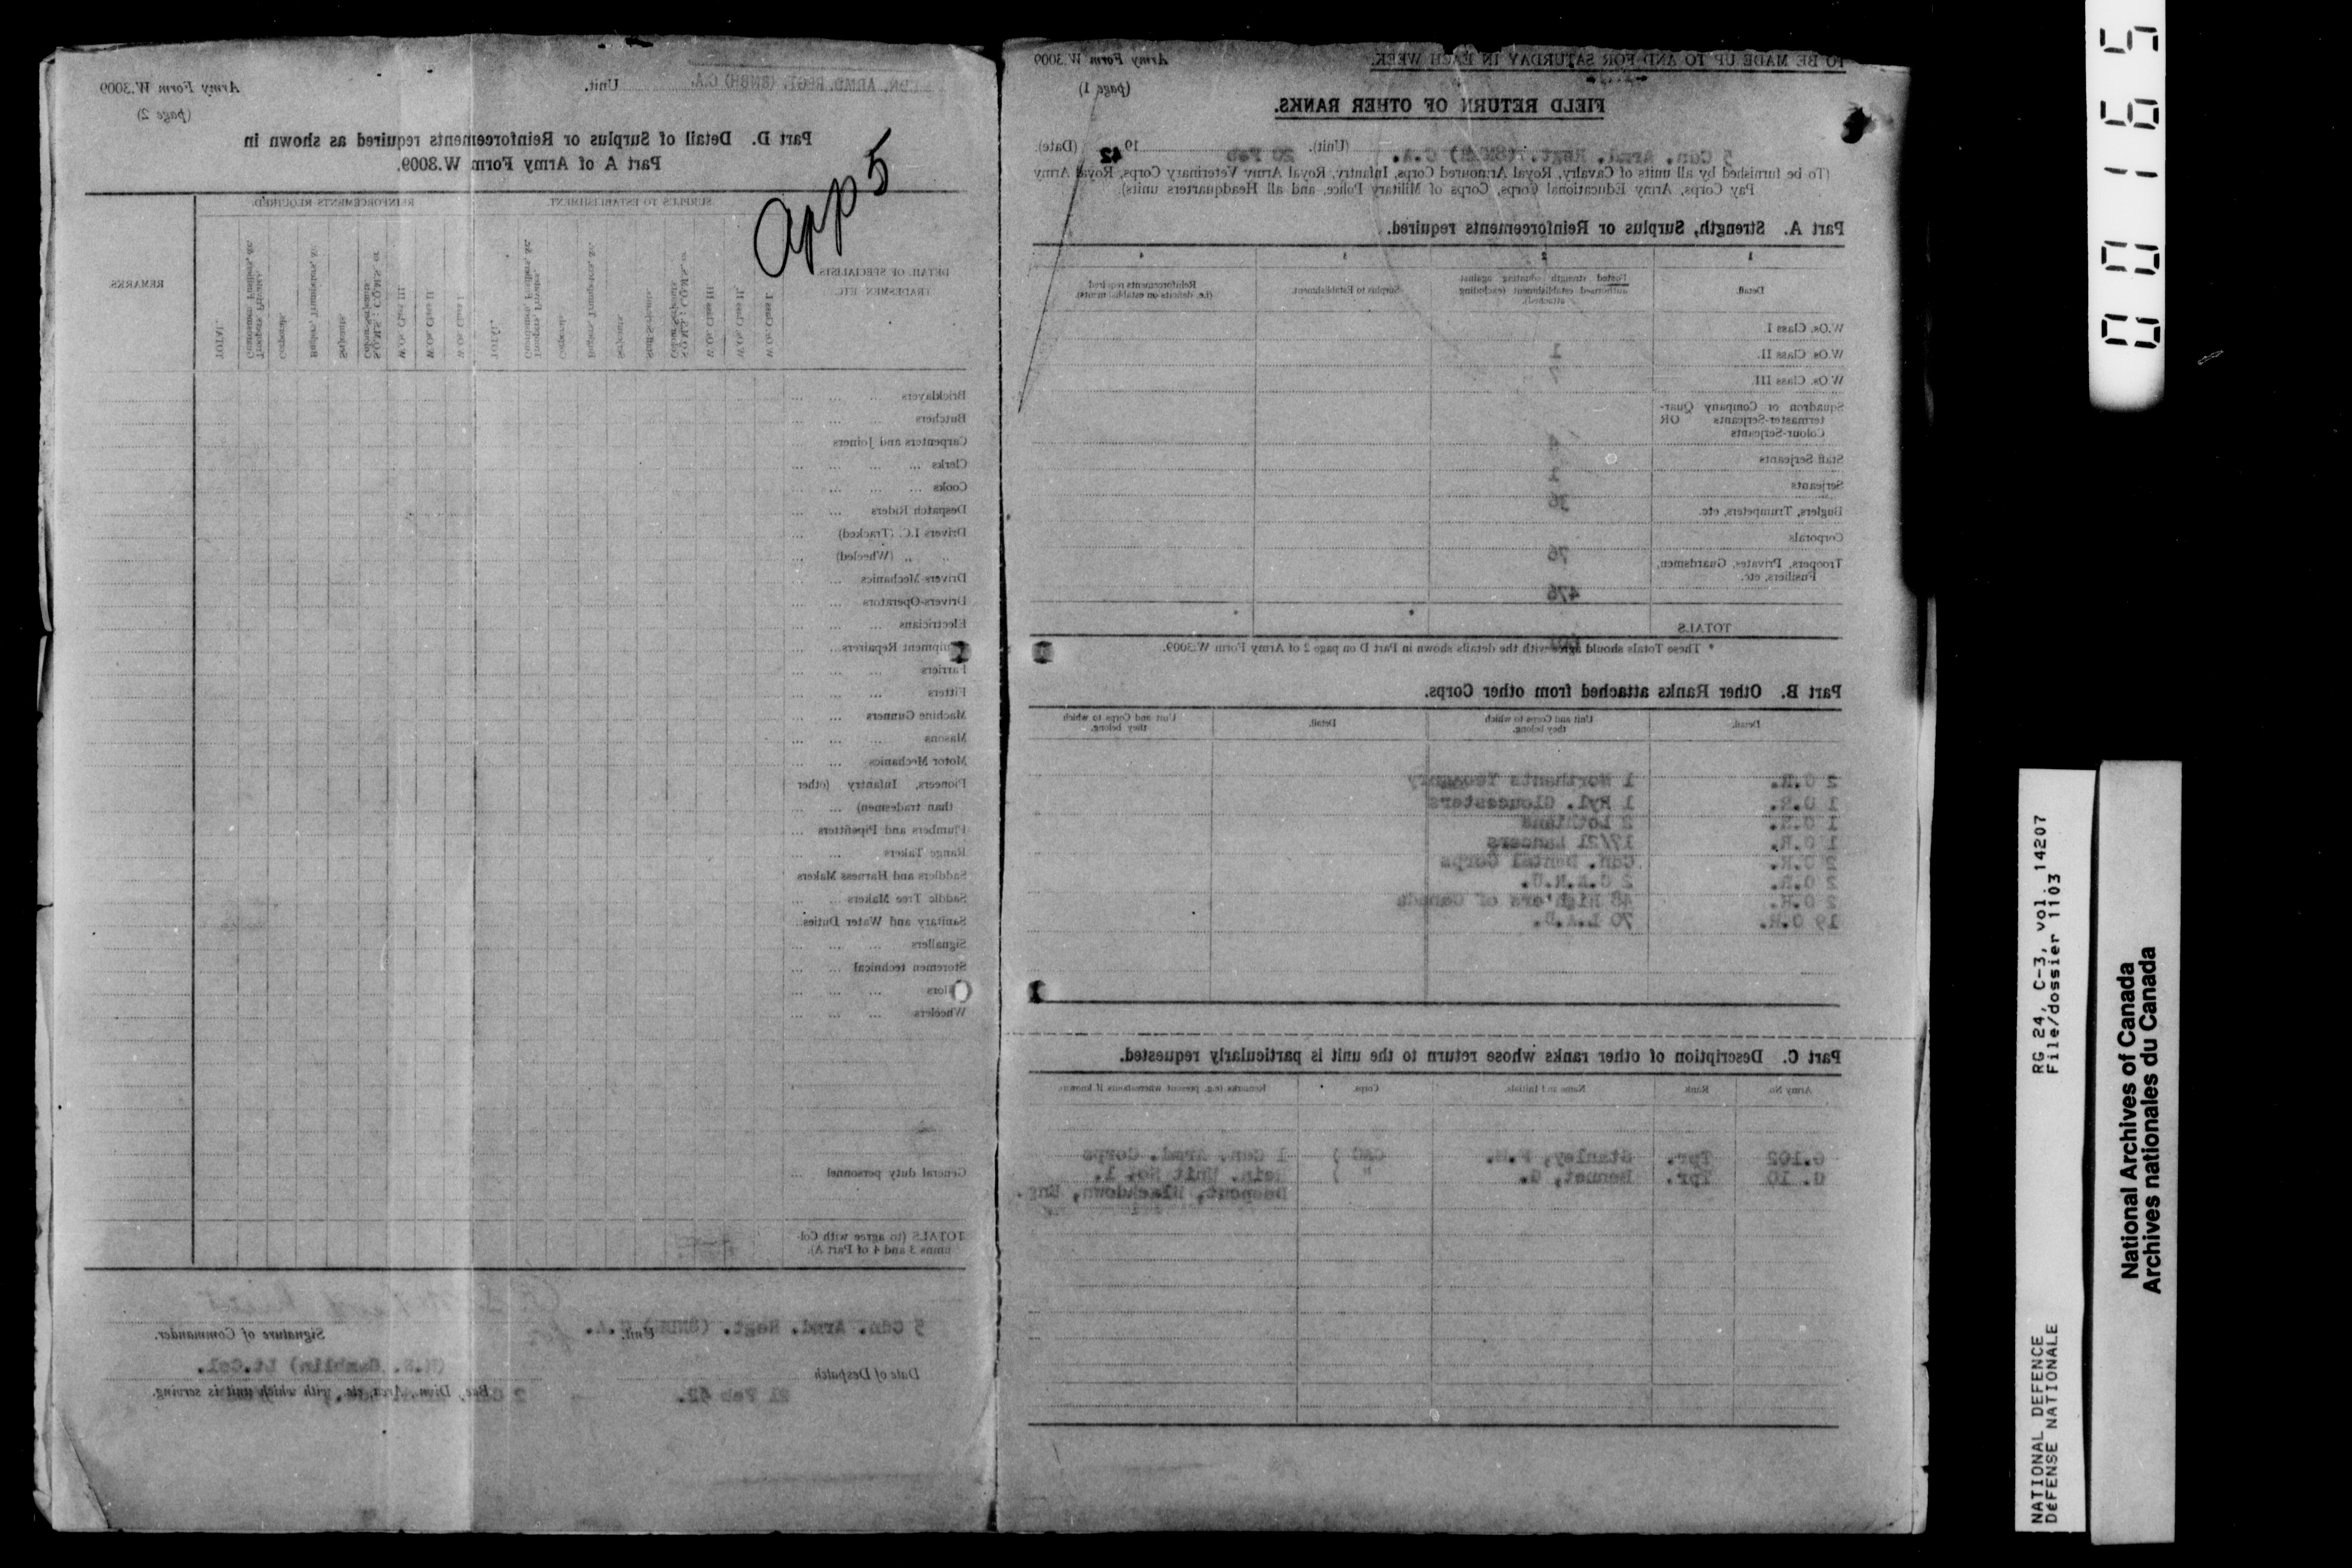 TO BE MADE UP TO AND FOR SATURDAY IN EACH WEEK.
Army Form W.3009
(page 1)
FIELD RETURN OF OTHER RANKS.
5 Cdn. Armd. Regt. (8NBH) C.A. (Unit). 20 Feb 1942 (Date).
(To be furnished by all units of Cavalry, Royal Armoured Corps, Infantry, Royal Army Veterinary Corps, Royal Army
Pay Corps, Army Educational Corps, Corps of Military Police, and all Headquarters units).
Part A. Strength, Surplus or Reinforcements required.
1 2 3 4
Detail.
Posted strength counting against
authorised establishment (excluding
attached).
Surplus to Establishment.
Reinforcements required
(i.e. deficits on establishments)
W.Os. Class I
W.Os. Class II. 1
W.Os. Class III. 7
Squadron or Company Quar-
termaster-Serjeants OR
Colour-Serjeants 4
Staff Serjeants 1
Serjeants 36
Buglers, Trumpeters, etc.
Corporals 76
Troopers, Privates, Guardsmen,
Fusiliers, etc. 476
TOTALS
* These Totals should agree with the details shown in Part D on page 2 of Army Form W.3009.
Part B. Other Ranks attached from other Corps.
Detail. Unit and Corps to which they belong. Detail. Unit and Corps to which they belong.
2 O.R. 1 Northants Yeomanry
1 O.R. 1 Ryl. Gloucesters
1 O.R. 2 Lothians
1 O.R. 17/21 Lancers
2 O.R. Cdn. Dental Corps
2 O.R. 2 C.A.R.U.
2 O.R. 48 High'ers of Canada
19 O.R. 70 L.A.D.
Part C. Description of other ranks whose return to the unit is particularly requested.
Army No. Rank Name and Initials. Corps. Remarks (e.g. present whereabouts if known)
G.102 Tpr. Stanley, F.M. CAC ) 1 Cdn. Armd. Corps
G. 10 Tpr. Bennet, G. " ) Rein. Unit No. 1.
Deepcut, Blackdown, Eng.
CDN. ARMD. REGT. (8NBH) C.A. Unit.
Army Form W.3009
(page 2)
Part D. Detail of Surplus or Reinforcements required as shown in
Part A of Army Form W.3009.
App 5
DETAIL OF SPECIALISTS
TRADESMEN ETC.
SURPLUS TO ESTABLISHMENT.
REINFORCEMENTS REQUIRED.
W.Os. Class I.
W.Os. Class II.
W.Os. Class III.
S.Q.M.S.; C.Q.M.S. or
Colour-Serjeants.
Staff Serjeants.
Serjeants.
Buglers, Trumpeters, &c.
Corporals.
Guardsmen, Fusiliers, &c.
Troopers, Privates.
TOTAL.
W.Os. Class I.
W.Os. Class II.
W.Os. Class III.
S.Q.M.S.; C.Q.M.S. or
Colour-Serjeants.
Serjeants.
Buglers, Trumpeters, &c.
Corporals.
Guardsmen, Fusiliers, &c.
Troopers, Privates.
TOTAL.
REMARKS
Bricklayers
Butchers
Carpenters and Joiners
Clerks
Cooks
Despatch Riders
Drivers I.C. (Tracked)
,, ,, (Wheeled)
Drivers Mechanics
Drivers-Operators
Electricians
Equipment Repairers
Farriers
Fitters
Machine Gunners
Masons
Motor Mechanics
Pioneers, Infantry (other
than tradesmen)
Plumbers and Pipefitters
Range Takers
Saddlers and Harness Makers
Saddle Tree Makers
Sanitary and Water Duties
Signallers
Storemen technical
Tailors
Wheelers
General duty personnel
TOTALS (to agree with Col-
umns 3 and 4 of Part A).
5 Cdn. Armd. Regt. (8NBH) C.A. Unit.
Signature of Commander.
Gamblin) Lt.Col.
Date of Despatch
21 Feb 42.
Bde., Divn., Area, etc. with which unit is serving.
001165
RG 24, C-3, vol. 14207
File/dossier 1103
NATIONAL DEFENCE
DÉFENSE NATIONALE
National Archives of Canada
Archives nationales du Canada